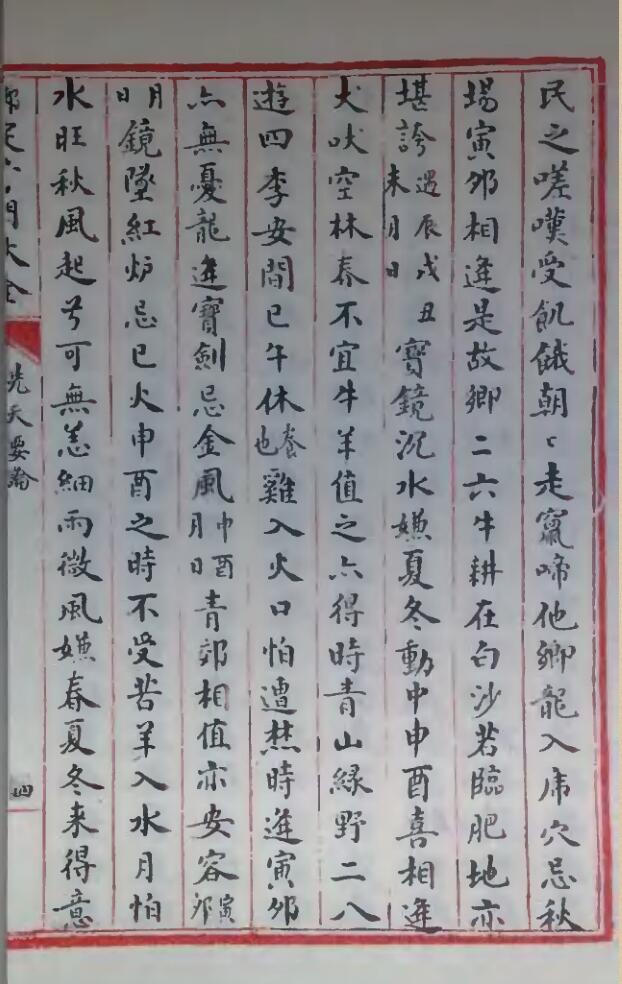 民之嗟嘆受飢餓朝〻走竄啼他鄉龍入虎穴忌秋
場寅夘相逢是故鄉二六牛耕在白沙若臨肥地亦
堪誇遇辰戌丑未月日寳鏡沉水嫌夏冬動中申酉喜相逢
犬吠空林春不宜牛羊值之亦得時青山緑野二八
遊四季安間巳午休養也雞入火口怕遭焚時逢寅夘
亦無憂龍逢寳劍忌金風申酉月日青郊相值亦安容寅夘
月日鏡墜紅炉忌巳火申酉之時不受苦羊入水月怕
水旺秋風起兮可無恙細雨微風嫌春夏冬来得意
門大全
先天要論
四